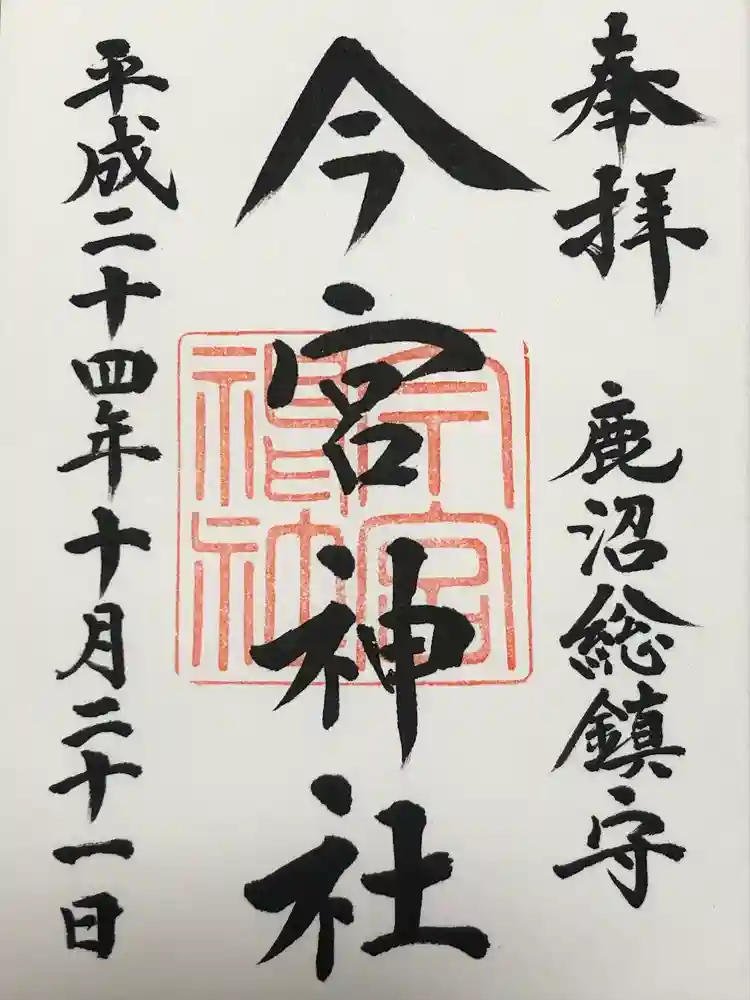 奉拝 鹿沼総鎮守
今宮神社
平成二十四年十月二十一日
今宮
神社